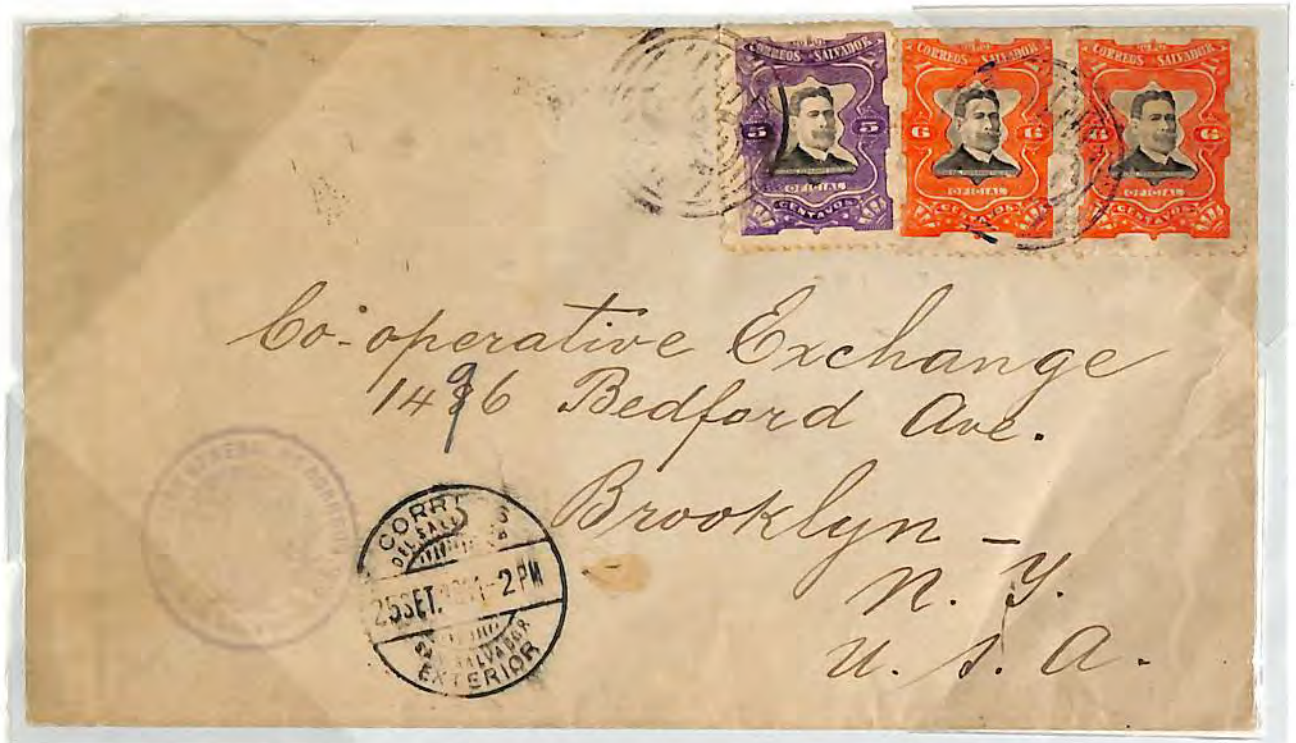 CORREOS SALVADOR
5 5
OFICIAL
CENTAVOS
CORREOS SALVADOR
6 6
OFICIAL
CENTAVOS
CORREOS SALVADOR
6 6
OFICIAL
CENTAVOS
Co-operative Exchange
1496 Bedford Ave.
Brooklyn -
N. Y.
U. S. A.
DEL SALV
25 SET. 2 PM
SALVADOR
EXTERIOR